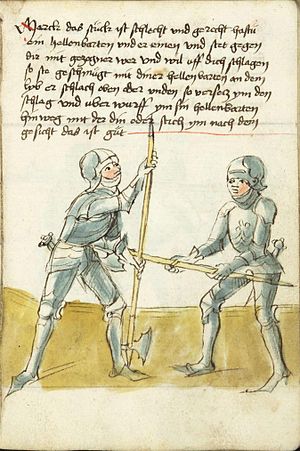 Marck das stuck ist schlecht und gerecht hastu
ein hellenbarten und er einen und stet gegen
dir mit gezogner wer und wil uff dich schlagen
so ste geschmugt mit diner hellenbarten an dem
lyb er schlach oben oder unden so versetz ym den
schlag und uber wurff ym sin hellenbarten
hinweg mit der din oder stich ym nach dem
gesicht das ist gut